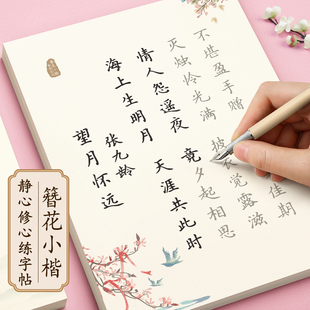 望月怀远
张九龄
海上生明月
天涯共此时
情人怨遥夜
竟夕起相思
灭烛怜光满
披衣觉露滋
不堪盈手赠
佳期
簪花小楷
静心修心练字帖